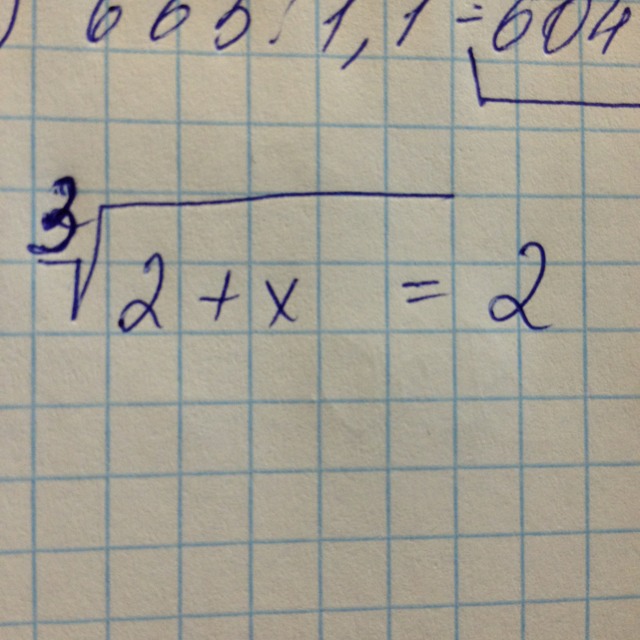 ) 665 : 1,1 = 604
∛2 + x = 2